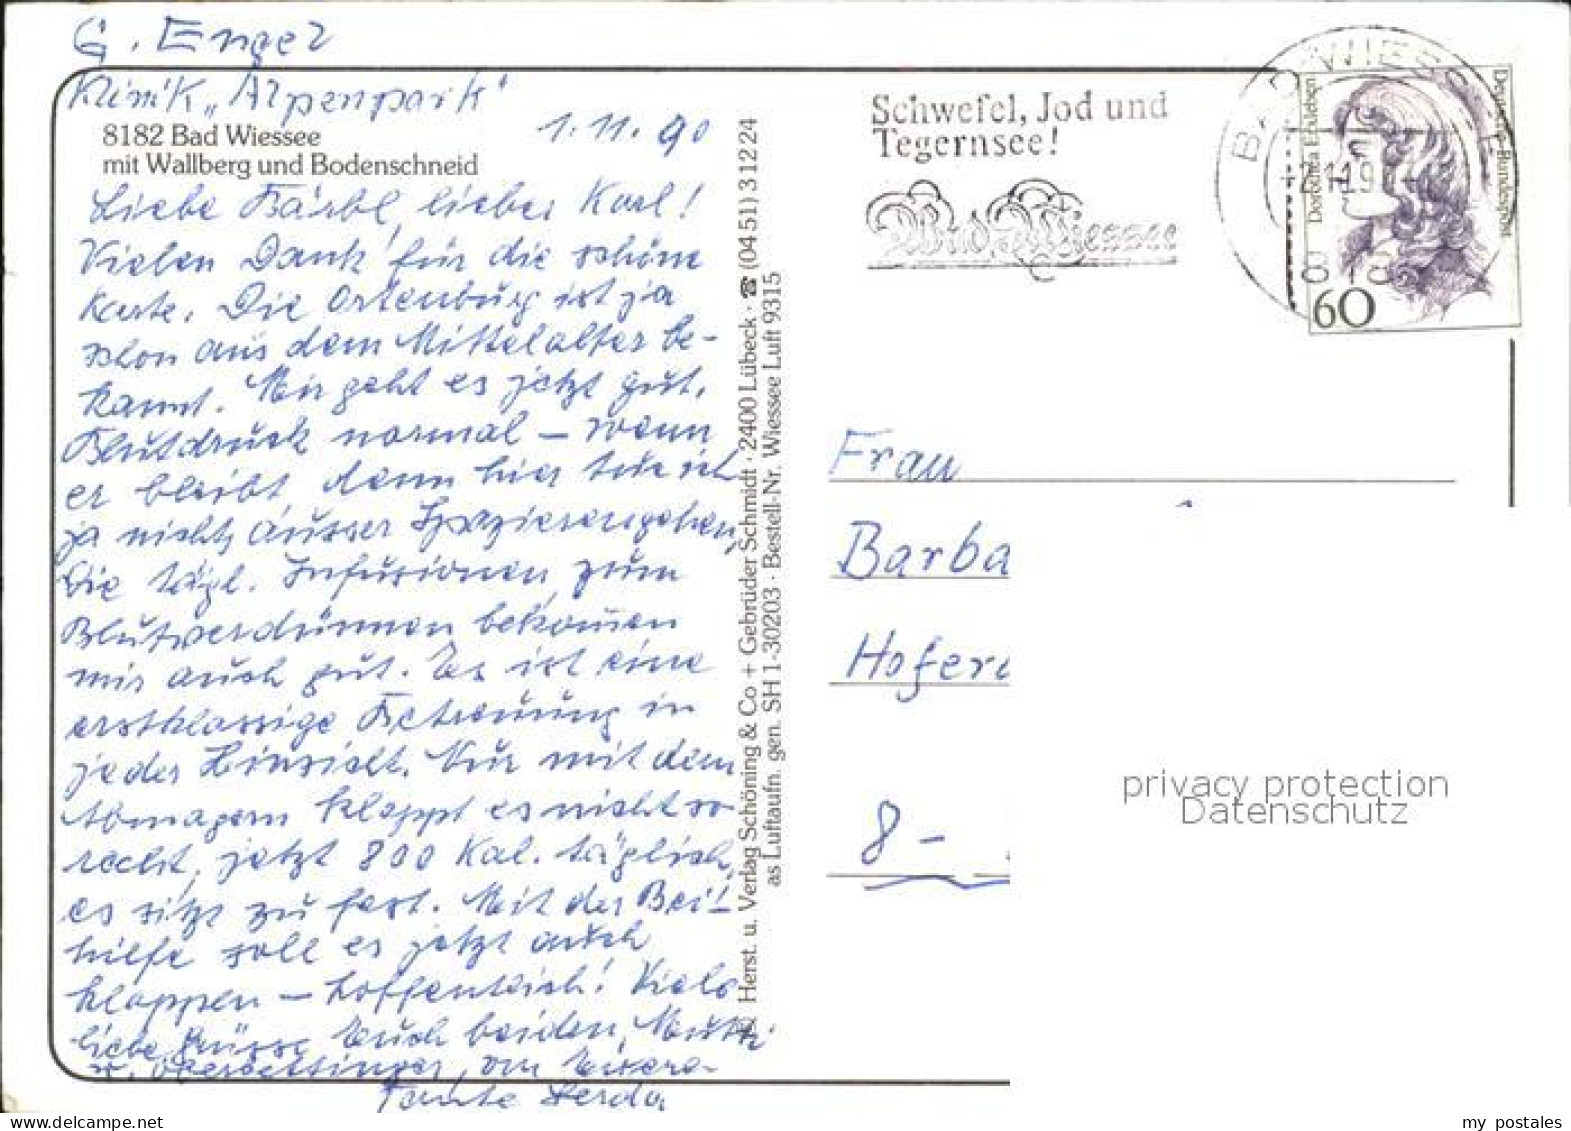 G. Enger
Klinik „Alpenpark"
8182 Bad Wiessee
mit Wallberg und Bodenschneid
1.11.90
Liebe Bärbl, lieber Karl!
Vielen Dank für die schöne
Karte. Die Ortenburg ist ja
schon aus dem Mittelalter be-
kannt. Mir geht es jetzt gut,
Blutdruck normal – wenn
er bleibt, denn hier tue ich
ja nichts ausser Spazierengehen,
Die tägl. Infusionen zum
Blutverdünnen bekommen
mir auch gut. Es ist eine
erstklassige Betreuung in
jeder Hinsicht. Nur mit dem
Abmagern klappt es nicht so
recht, jetzt 800 Kal. täglich,
es sitzt zu fest. Mit der Bei-
hilfe soll es jetzt auch
klappen – hoffentlich! Viele
liebe Grüsse Euch beiden, Mutti
u. von Eurer
Tante Gerda
Herst. u. Verlag Schöning & Co + Gebrüder Schmidt · 2400 Lübeck · ☎ (04 51) 3 12 24
as Luftaufn. gen. SH 1-30203 · Bestell-Nr. Wiessee Luft 9315
Schwefel, Jod und
Tegernsee!
Bad Wiessee
BAD WIESSEE
Dorothea Erxleben
Deutsche Bundespost
60
Frau
Barba
Hofer
8 –
privacy protection
Datenschutz
www.delcampe.net
my_postales